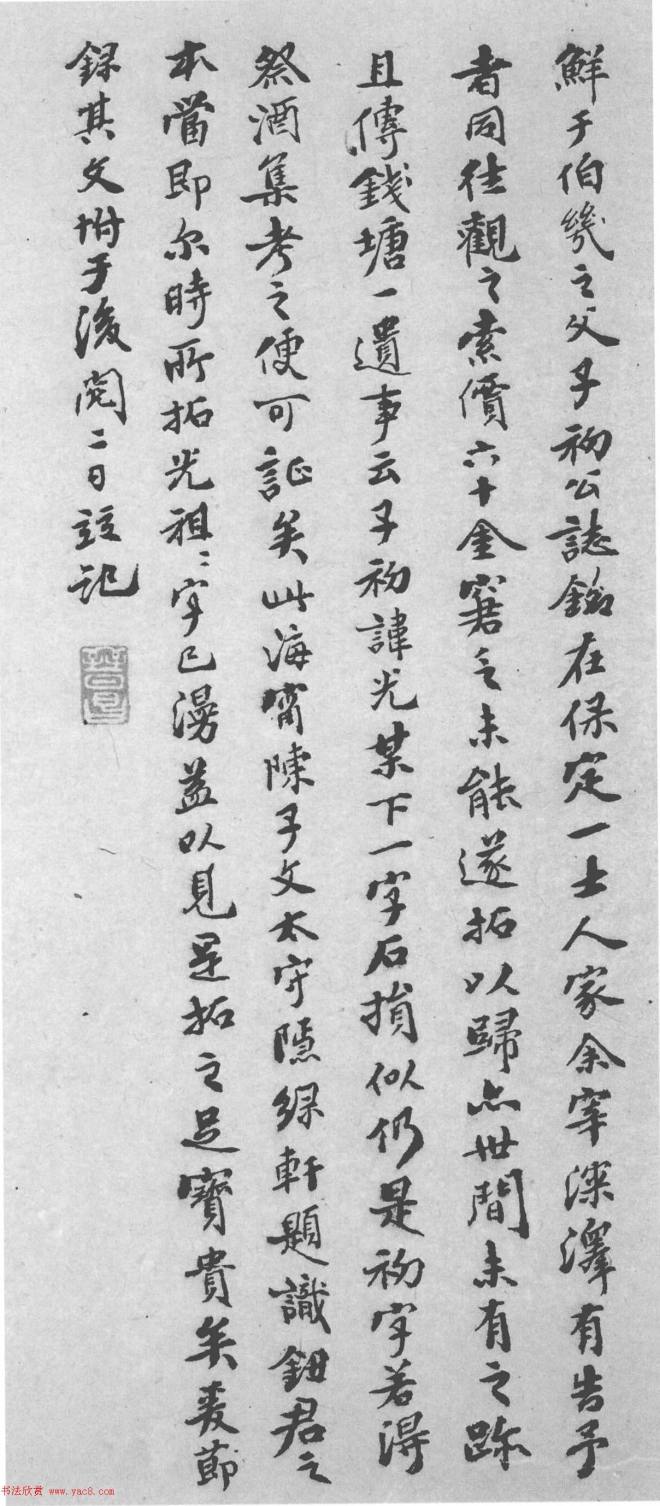 鮮于伯幾之父子初公誌銘在保定一士人家余宰深澤有告予
者同往觀之索價六十金窘乏未能遂拓以歸亦世間未有之跡
且傳錢塘一遺事云子初諱光某下一字石損似仍是初字若得
祭酒集考之便可証矣此海甯陳子文太守隱綠軒題識鈕君之
本當即尔時所拓光祖祖字已漫益以見是拓之足寶貴矣爰節
錄其文坿于後閱二日  記
书法欣赏 www.yac8.com